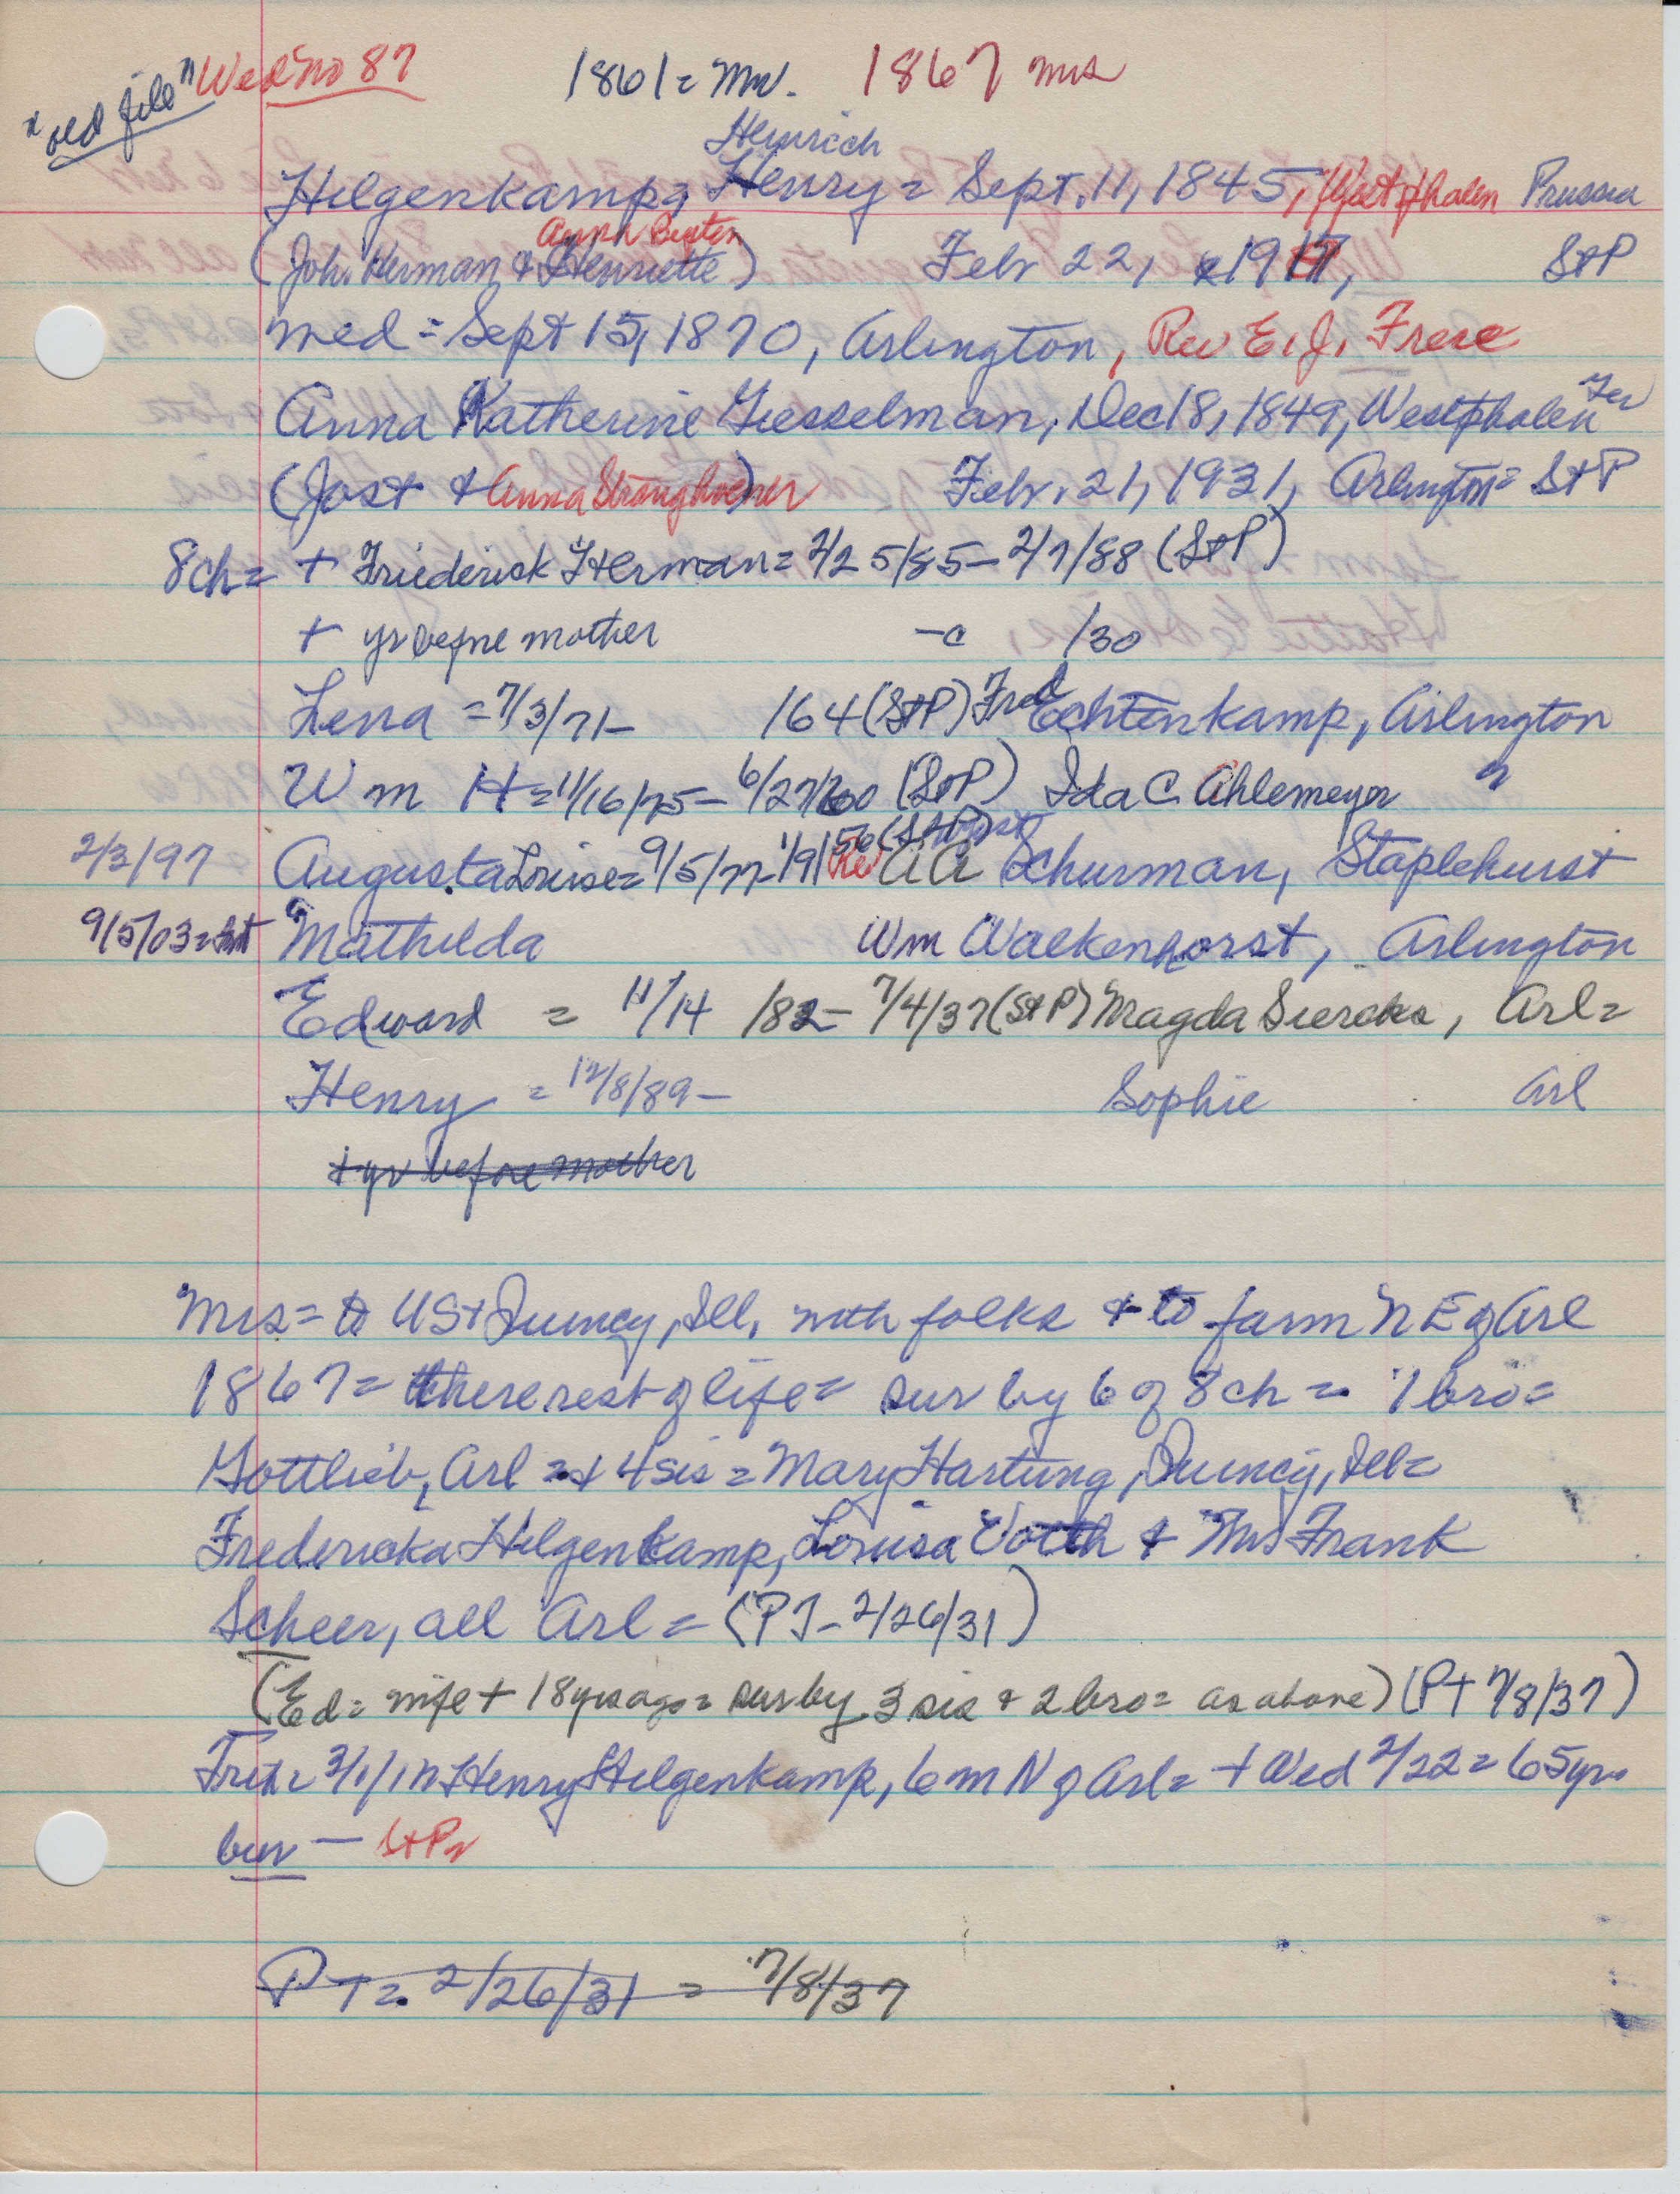 "old file" Wed No 87 1861 = Mr. 1867 Mrs
Heinrich
Hilgenkamp, Henry = Sept. 11, 1845, Westfhalen Prussia
Anna Beaten
(Joh. Herman & Henriette) Febr 22, 1917, St P
med = Sept 15, 1870, Arlington, Rev E. J. Frese
Anna Katherine Giesselman, Dec 18, 1849, Westphalen Ger
(Jost & Anna Stranghoener) Febr. 21, 1931, Arlington = St P
8 ch = + Friederick Herman = 2/25/85 – 2/7/88 (St P)
+ yr before mother – c /30
Lena = 7/3/71 – /64 (St P) Fred Echtenkamp, Arlington
Wm H = 11/16/75 – 6/27/60 (St P) Ida C. Ahlemeyer "
2/3/97 Augusta Louise = 9/5/77 – 1/9/56 (St P) Rev A A Schurman, Staplehurst
9/5/03 = Mathilda Wm Walkenhorst, Arlington
Edward = 11/14 /82 – 7/4/37 (St P) Magda Siercks, Arl =
Henry = 12/8/89 – Sophie Arl
+ yr before mother
Mrs = to US + Quincy, Ill. with folks + to farm N E of Arl
1867 = there rest of life = sur by 6 of 8 ch = 1 bro =
Gottlieb, Arl = + 4 sis = Mary Hartung, Quincy, Ill =
Fredericka Hilgenkamp, Louisa Voth & Mrs Frank
Scheer, all Arl = (PT – 2/26/31)
(Ed = wife + 18 yrs ago = sur by 3 sis & 2 bro = as above) (PT 7/8/37)
2/1/17 Henry Hilgenkamp, 6 m N of Arl = + Wed 2/22 = 65 yrs
bur – St P
PT = 2/26/31 = 7/8/37